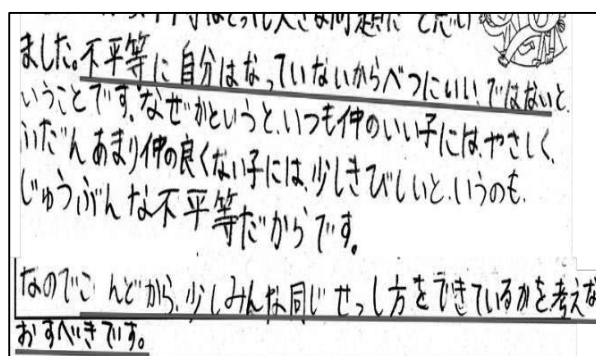 大きな問題だと思い
ました。不平等に自分はなっていないからべつにいいではないと
いうことです。なぜかというと、いつも仲のいい子には、やさしく、
ふだんあまり仲の良くない子には、少しきびしいと、いうのも、
じゅうぶんな不平等だからです。
なのでこんどから、少しみんな同じせっし方をできているかを考えな
おすべきです。